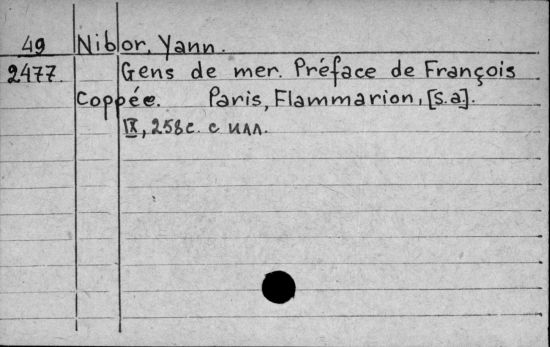 49 Nibor, Yann.
2477. Gens de mer. Préface de François
Coppée. Paris, Flammarion, [s.a].
IX, 258с. с илл.